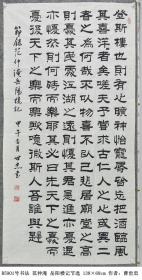 登斯樓也則有心曠神怡寵辱皆忘把酒臨風
其喜洋洋者矣嗟夫予嘗求古仁人之心或異二
者之為何哉不以物喜不以己悲居廟堂之高
則憂其民處江湖之遠則憂其君是進亦憂退
亦憂然則何時而樂耶其必曰先天下之憂而
憂後天下之樂而樂乎噫微斯人吾誰與歸
節錄范仲淹岳陽樓記
甲午 世忠書
B5901号书法 范仲淹 岳阳楼记节选 138×68cm 作者：曹世忠